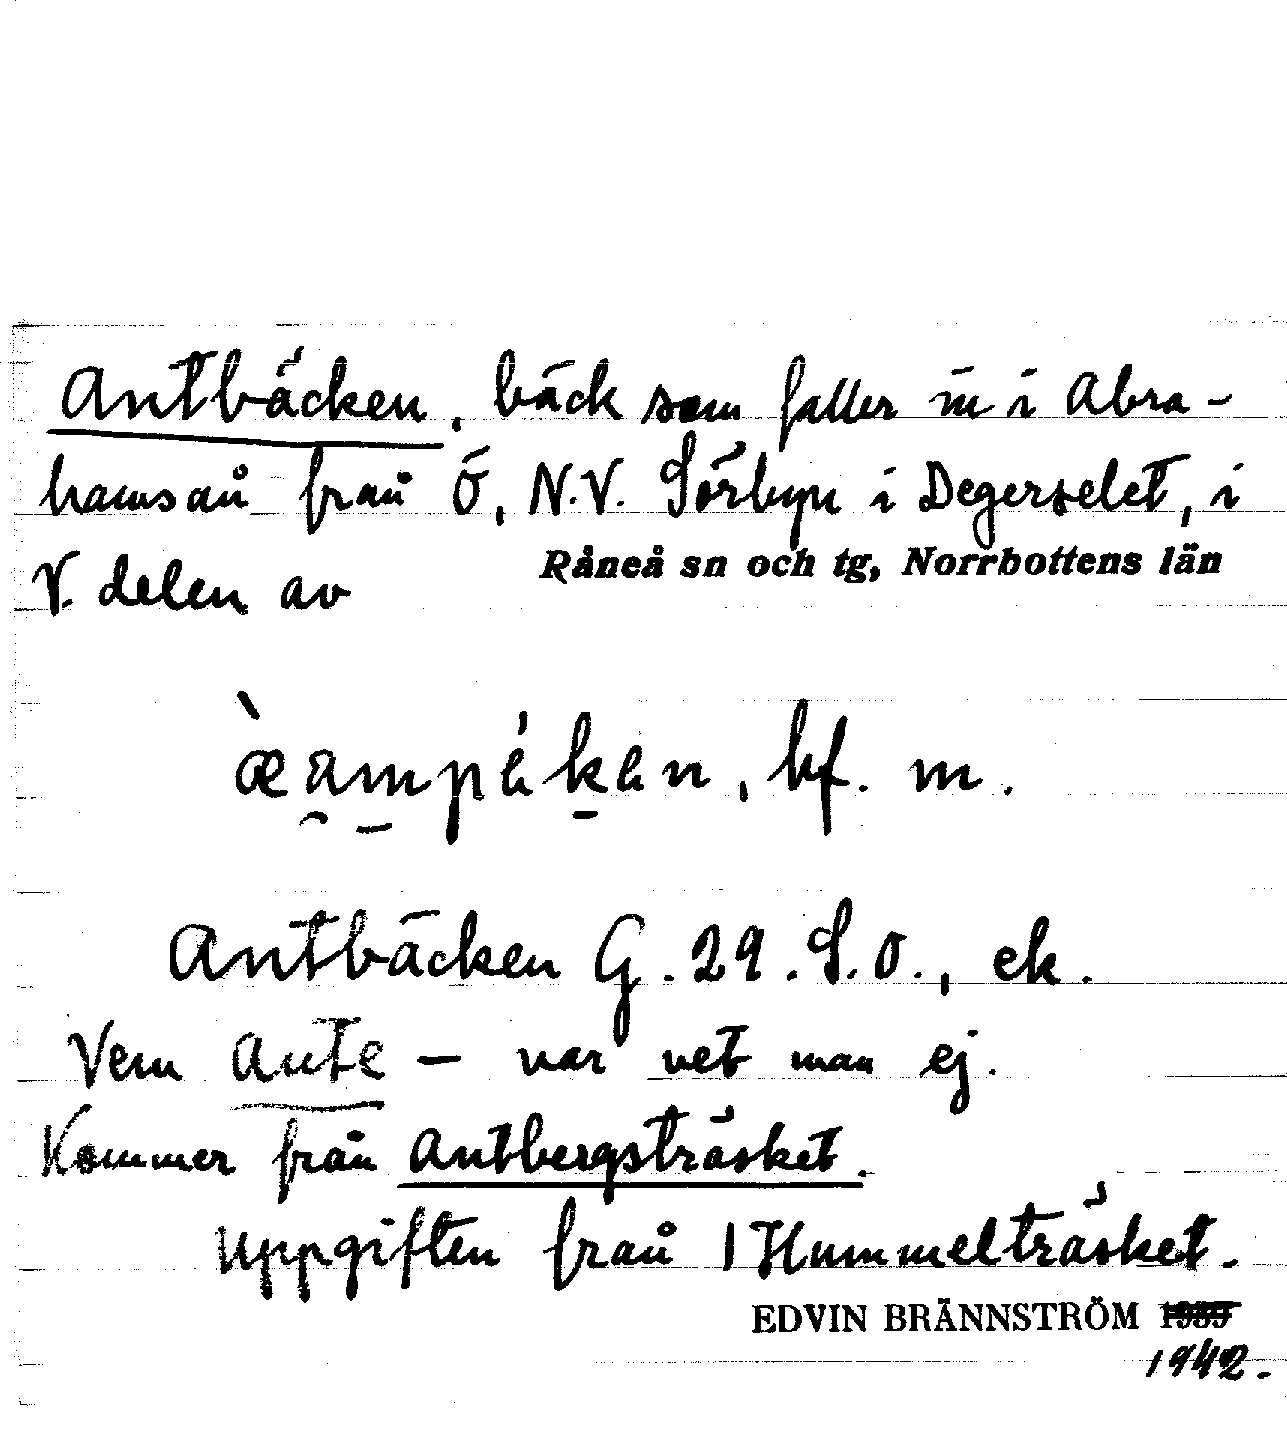 Antbäcken, bäck som faller in i Abra-
hamsån från Ö, N.V. Sörbyn i Degerselet, i
V. delen av Råneå sn och tg, Norrbottens län
bf. m.
Antbäcken G. 29. S.O., ek.
Vem Ante — var vet man ej.
Kommer från Antbergsträsket.
Uppgiften från 1 Hummelträsket.
EDVIN BRÄNNSTRÖM 1933
1942.